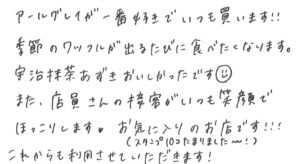 アールグレイが一番お好きでいつも買います!!
季節のワッフルが出るたびに食べたくなります。
宇治抹茶あずきおいしかったです☺
また、店員さんの接客がいつも笑顔で
ほっこりします。お気に入りのお店です!!!
(スタンプ10コたまりました〜!)
これからも利用させていただきます!